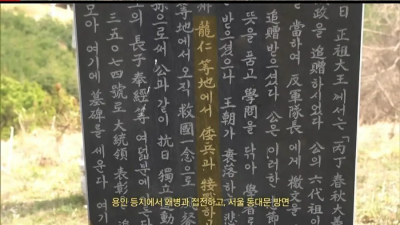 日 正祖大王께서는 一丙丁 春秋大義
政을 追贈하시었다 公의 六代祖인
을 當하여 反軍隊長에게 檄文을
追贈받으셨다 公은 이러한
뜻을 품고 學問을 닦아 學者로
받으셨으나 王朝가 衰落하고 悲
龍仁等地에서 倭兵과 接戰하고
等地에서 오직 救國一念으로
으로써 公과 같이 抗日 獨立
의 長子 泰經等 여덟분에
三五○七四號로 大統領 表彰
모아 여기에 墓碑를 세운다 여기
용인 등지에서 왜병과 접전하고, 서울 동대문 방면